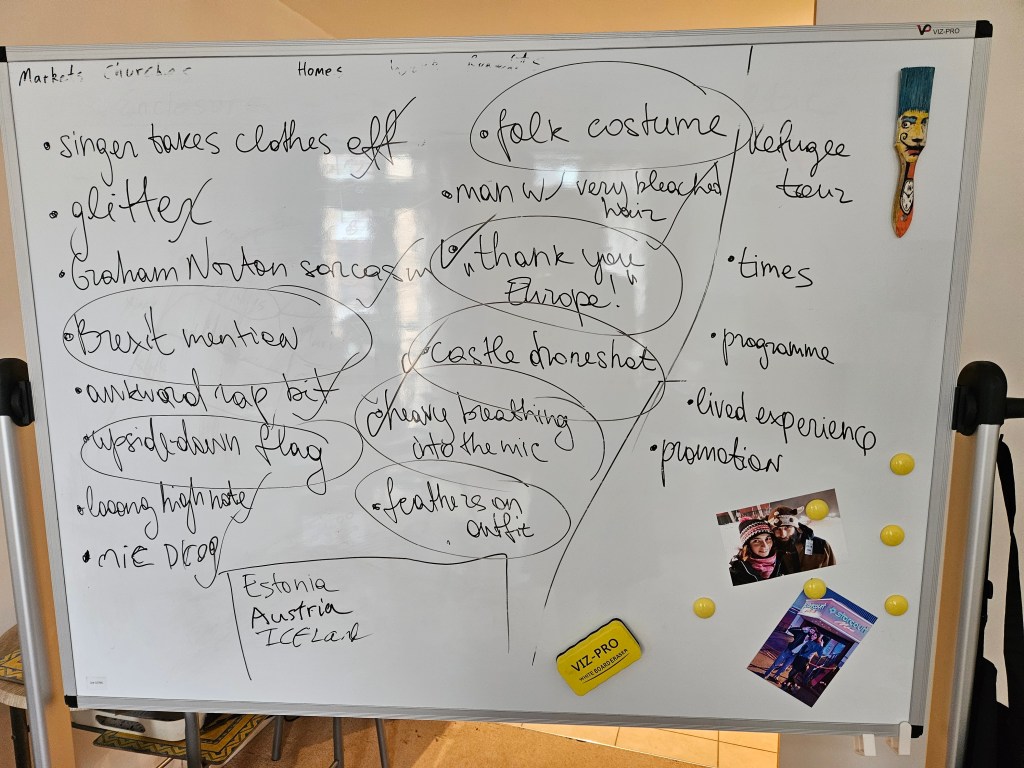 VIZ-PRO
Markets Churches Homes
• singer takes clothes off
• glitter
• Graham Norton sarcasm
• Brexit mention
• awkward rap bit
• upside-down flag
• looong high note
• mic Drop
• folk costume
• man w/ very bleached
hair
• "thank you
Europe!"
• castle droneshot
• heavy breathing
into the mic
• feathers on
outfit
Estonia
Austria
ICELand
Refugee
tour
• times
• programme
• lived experience
• promotion
VIZ-PRO
WHITEBOARD ERASER